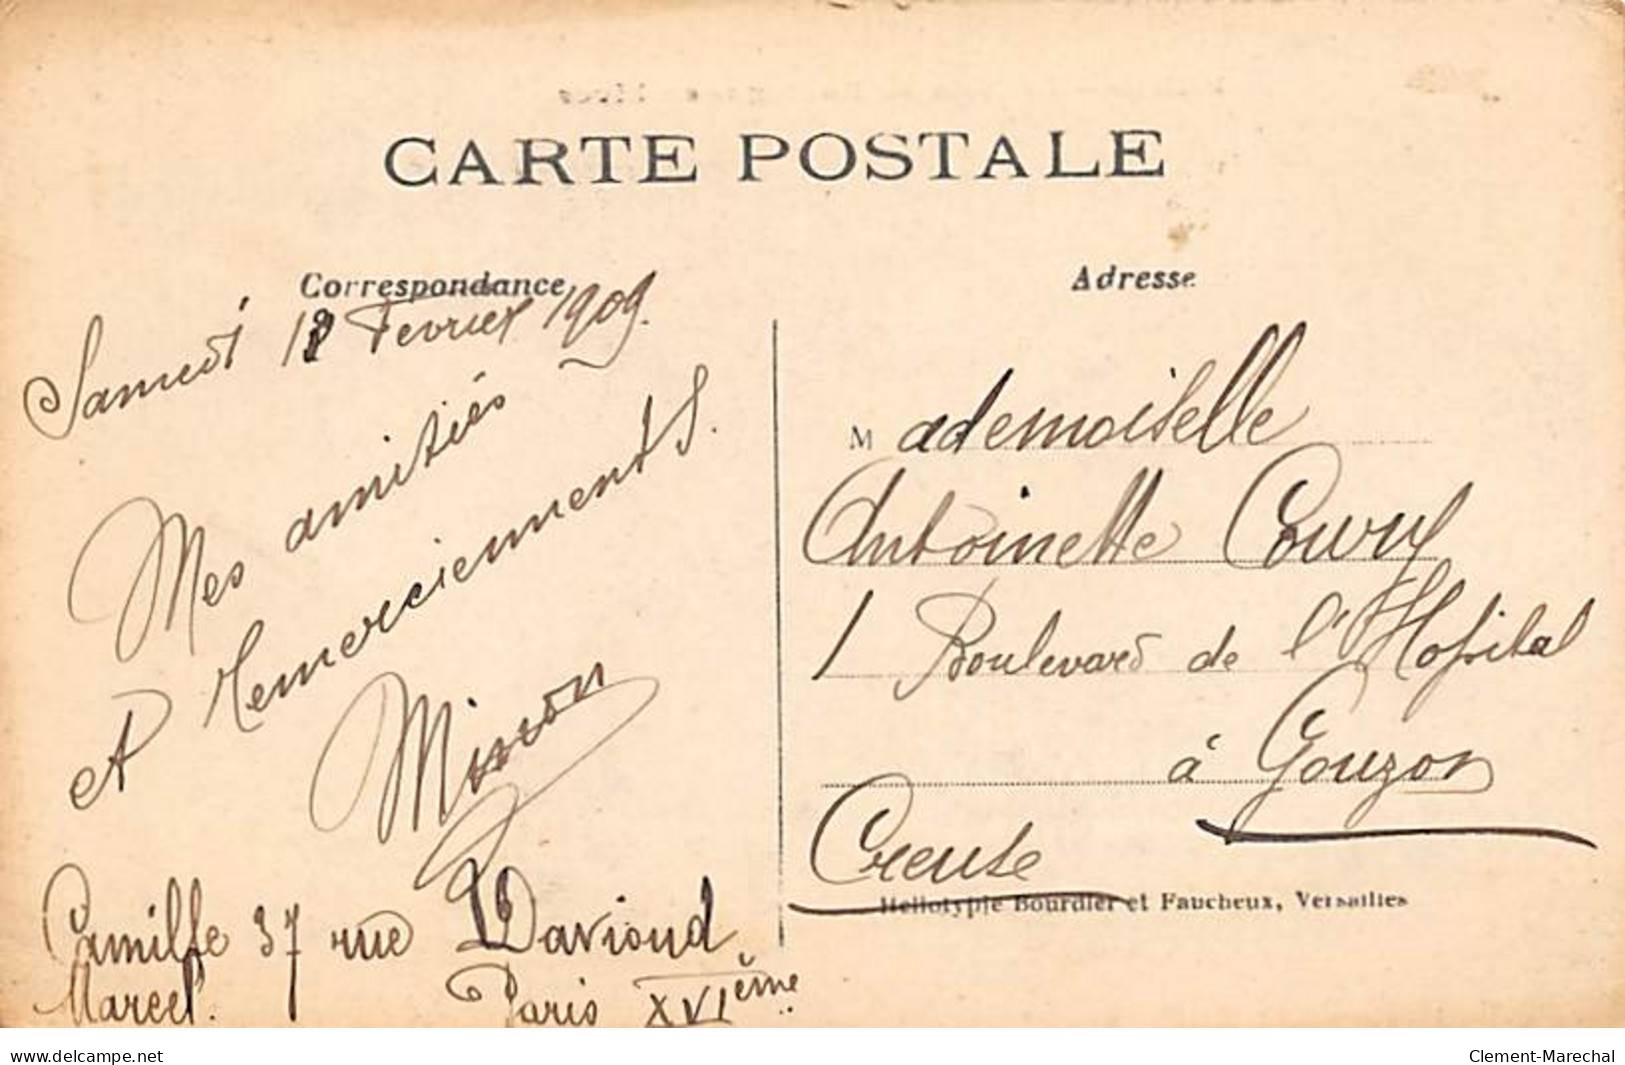 CARTE POSTALE
Correspondance
Adresse
Samedi Fevrier 1909.
Mes amitiés
et remerciements.
Camille 37 rue Davioud
Marcel. Paris XVIème
Mademoiselle
Antoinette
1 Boulevard de l'Hopital
à Gouzon
Creuse
Héliotypie Bourdier et Faucheux, Versailles
delcampe.net
Clement-Marechal